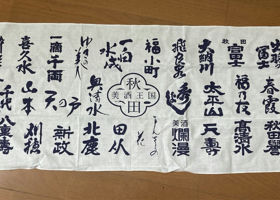 秋田
富士
大納川
太平山
天壽
福乃友
高清水
春霞
飛良泉
秀よし
美酒
爛漫
福小町
一白
水成
秋田
美酒王国
田从
ゆきの美人
奥清水
北鹿
一滴千両
天の戸
新政
喜久水
山本
刈穂
千代
八重寿